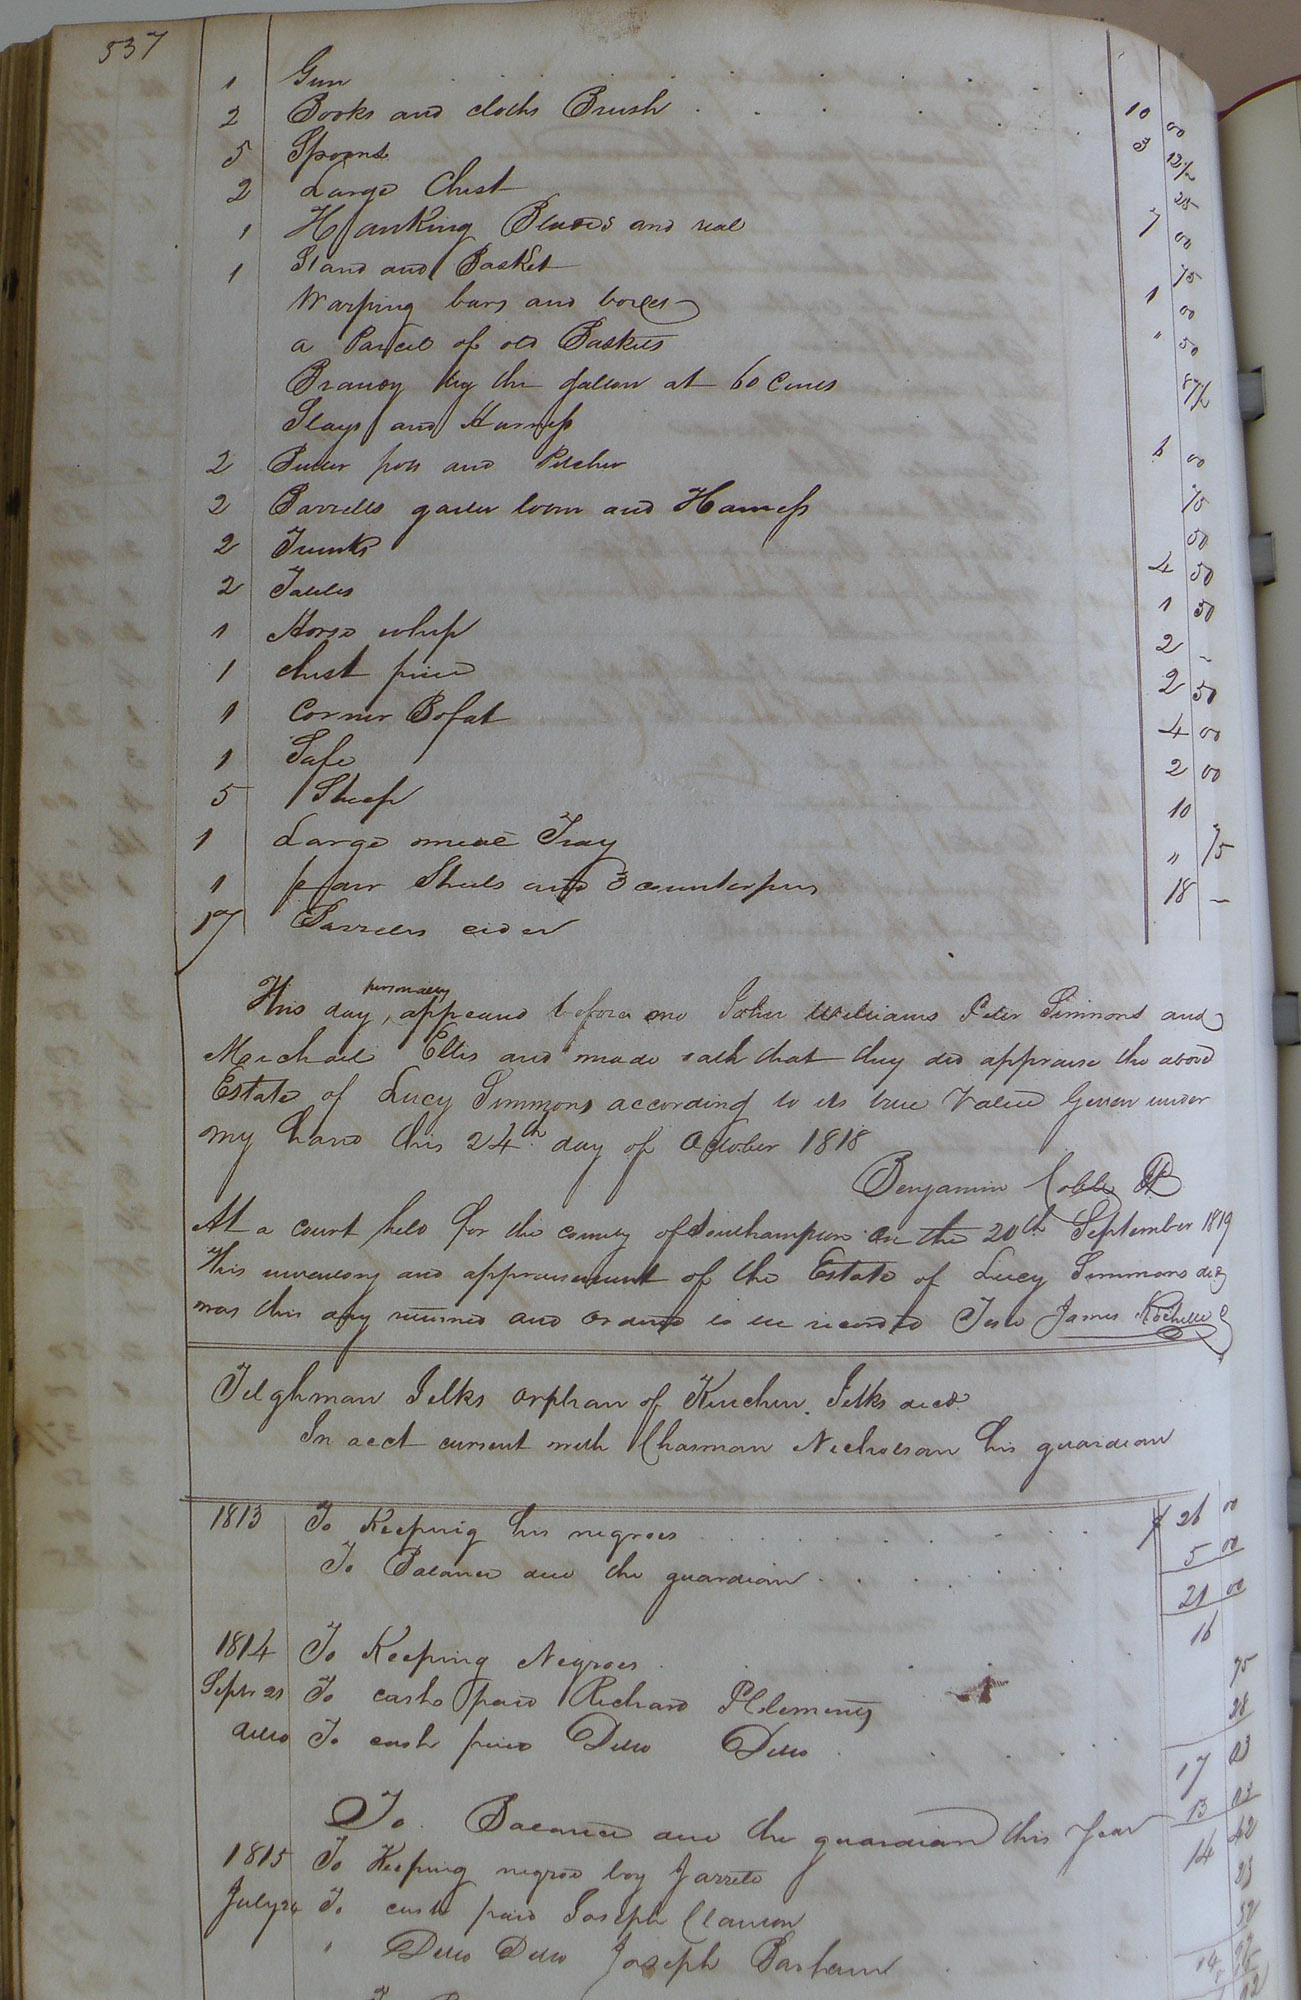 537
1 Gun 10 00
2 Books and cloths Brush 3 12½
5 Spoons 25
2 Large Chest 7 00
1 Hanking Blades and real 75
1 Stand and Basket 1 00
Warping bars and boxes " 50
a Parcel of old Baskets 87½
Brandy by the gallon at 60 Cents
Slays and Harness 6 00
2 Butter pots and Pitcher 75
2 Barrells loom and Harness 50
2 Trunks 4 50
2 Tables 1 50
1 Horse whip 2 -
1 Chest pine 2 50
1 Corner Bofat 4 00
1 Safe 2 00
5 Sheep 10
1 Large meal Tray " 75
1 pair Sheets and 3 counterpins 18 -
17 Barrells cider
This day personally appeared before me John Williams Peter Simmons and
Michael Ellis and made oath that they did appraise the above
Estate of Lucy Simmons according to its true Value Given under
my hand this 24th day of October 1818
Benjamin Cobb JP
At a court held for the county of Southampton on the 20th September 1819
This inventory and appraisement of the Estate of Lucy Simmons decd
was this day returned and ordered to be recorded Teste James Rochelle C
Tilghman Jelks orphan of Kinchin Jelks decd
In acct current with Charman Nicholson his guardian
1813 To Keeping his negroes $ 26 00
To Balance due the guardian 5 00
21 00
1814 To Keeping Negroes 16
Septr 21 To cash paid Richard P Clements 75
ditto To cash paid Ditto Ditto 28
17 03
To Balance due the guardian this year 13 03
1815 To Keeping negroe boy Jarrett 14
July 24 To cash paid Joseph Claunon
" Ditto Ditto Joseph Barham